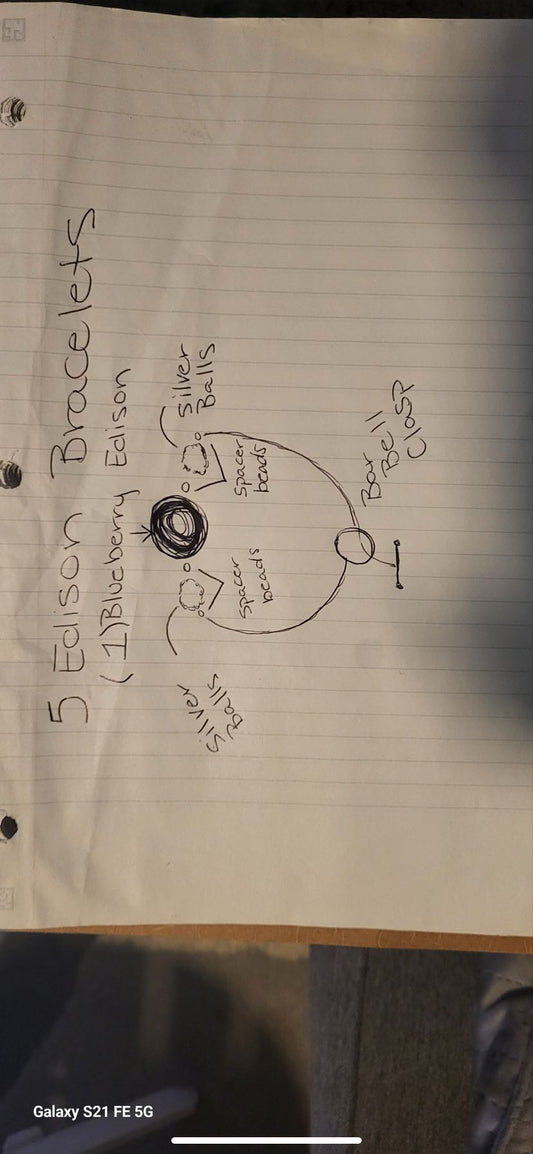 5 Edison Bracelets
(1) Blueberry Edison
silver
Balls
spacer
beads
spacer
beads
silver
Balls
Bar
Bell
Clasp
Galaxy S21 FE 5G